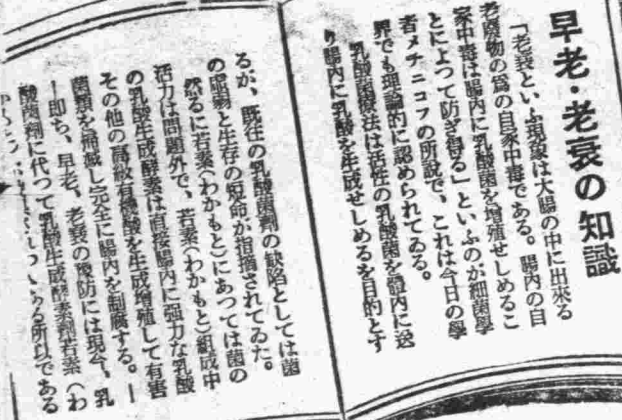 早老・老衰の知識
「老衰といふ現象は大腸の中に出來る
老廢物の爲の自家中毒である。腸內の自
家中毒は腸內に乳酸菌を增殖せしめるこ
とによつて防ぎ得る」といふのが細菌學
者メチニコフの所說で、これは今日の學
界でも理論的に認められてゐる。
乳酸菌療法は活性の乳酸菌を體內に送
り腸內に乳酸を生成せしめるを目的とす
るが、既往の乳酸菌劑の缺陷としては菌
の脆弱と生存の短命が指摘されてゐた。
然るに若素(わかもと)にあつては菌の
活力は問題外で、若素(わかもと)組成中
の乳酸生成酵素は直接腸內に强力な乳酸
その他の高敏有機酸を生成增殖して有害
菌類を掃蕩し完全に腸內を制腐する。—
—即ち、早老、老衰の豫防には現今、乳
酸菌劑に代つて乳酸生成酵素劑若素(わ
ある所以である